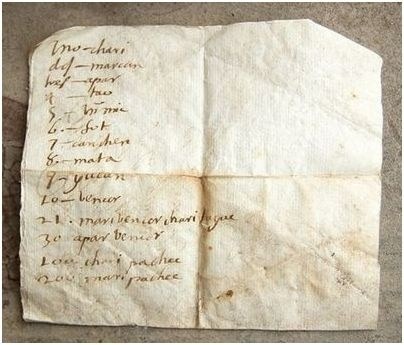 Uno — chari
dos — marcan
tres — apar
4 — tao
5 — himic
6. — sot
7 — canchen
8. — mata
9 — yucan
10 — bencor
21. maribencor chari tayac
30 apar bencor
100 chari pachac
200 mari pachac